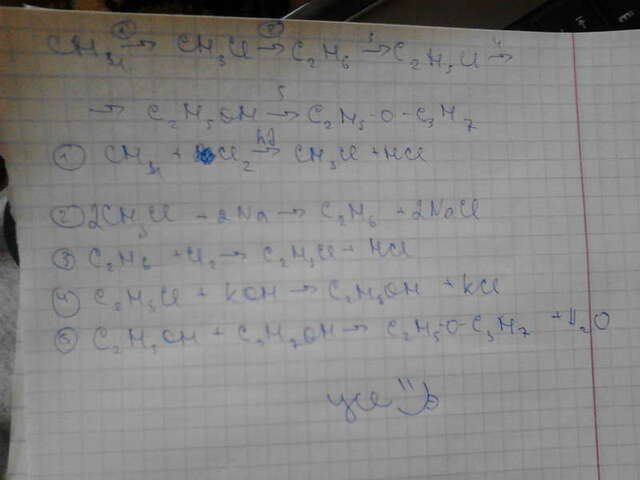 CH4 ①→ CH3Cl ②→ C2H6 3→ C2H5Cl 4→
→ C2H5OH 5→ C2H5-O-C3H7
① CH4 + Cl2 hλ→ CH3Cl + HCl
② 2CH3Cl + 2Na → C2H6 + 2NaCl
③ C2H6 + Cl2 → C2H5Cl + HCl
④ C2H5Cl + KOH → C2H5OH + KCl
⑤ C2H5OH + C3H7OH → C2H5-O-C3H7 + H2O
усе